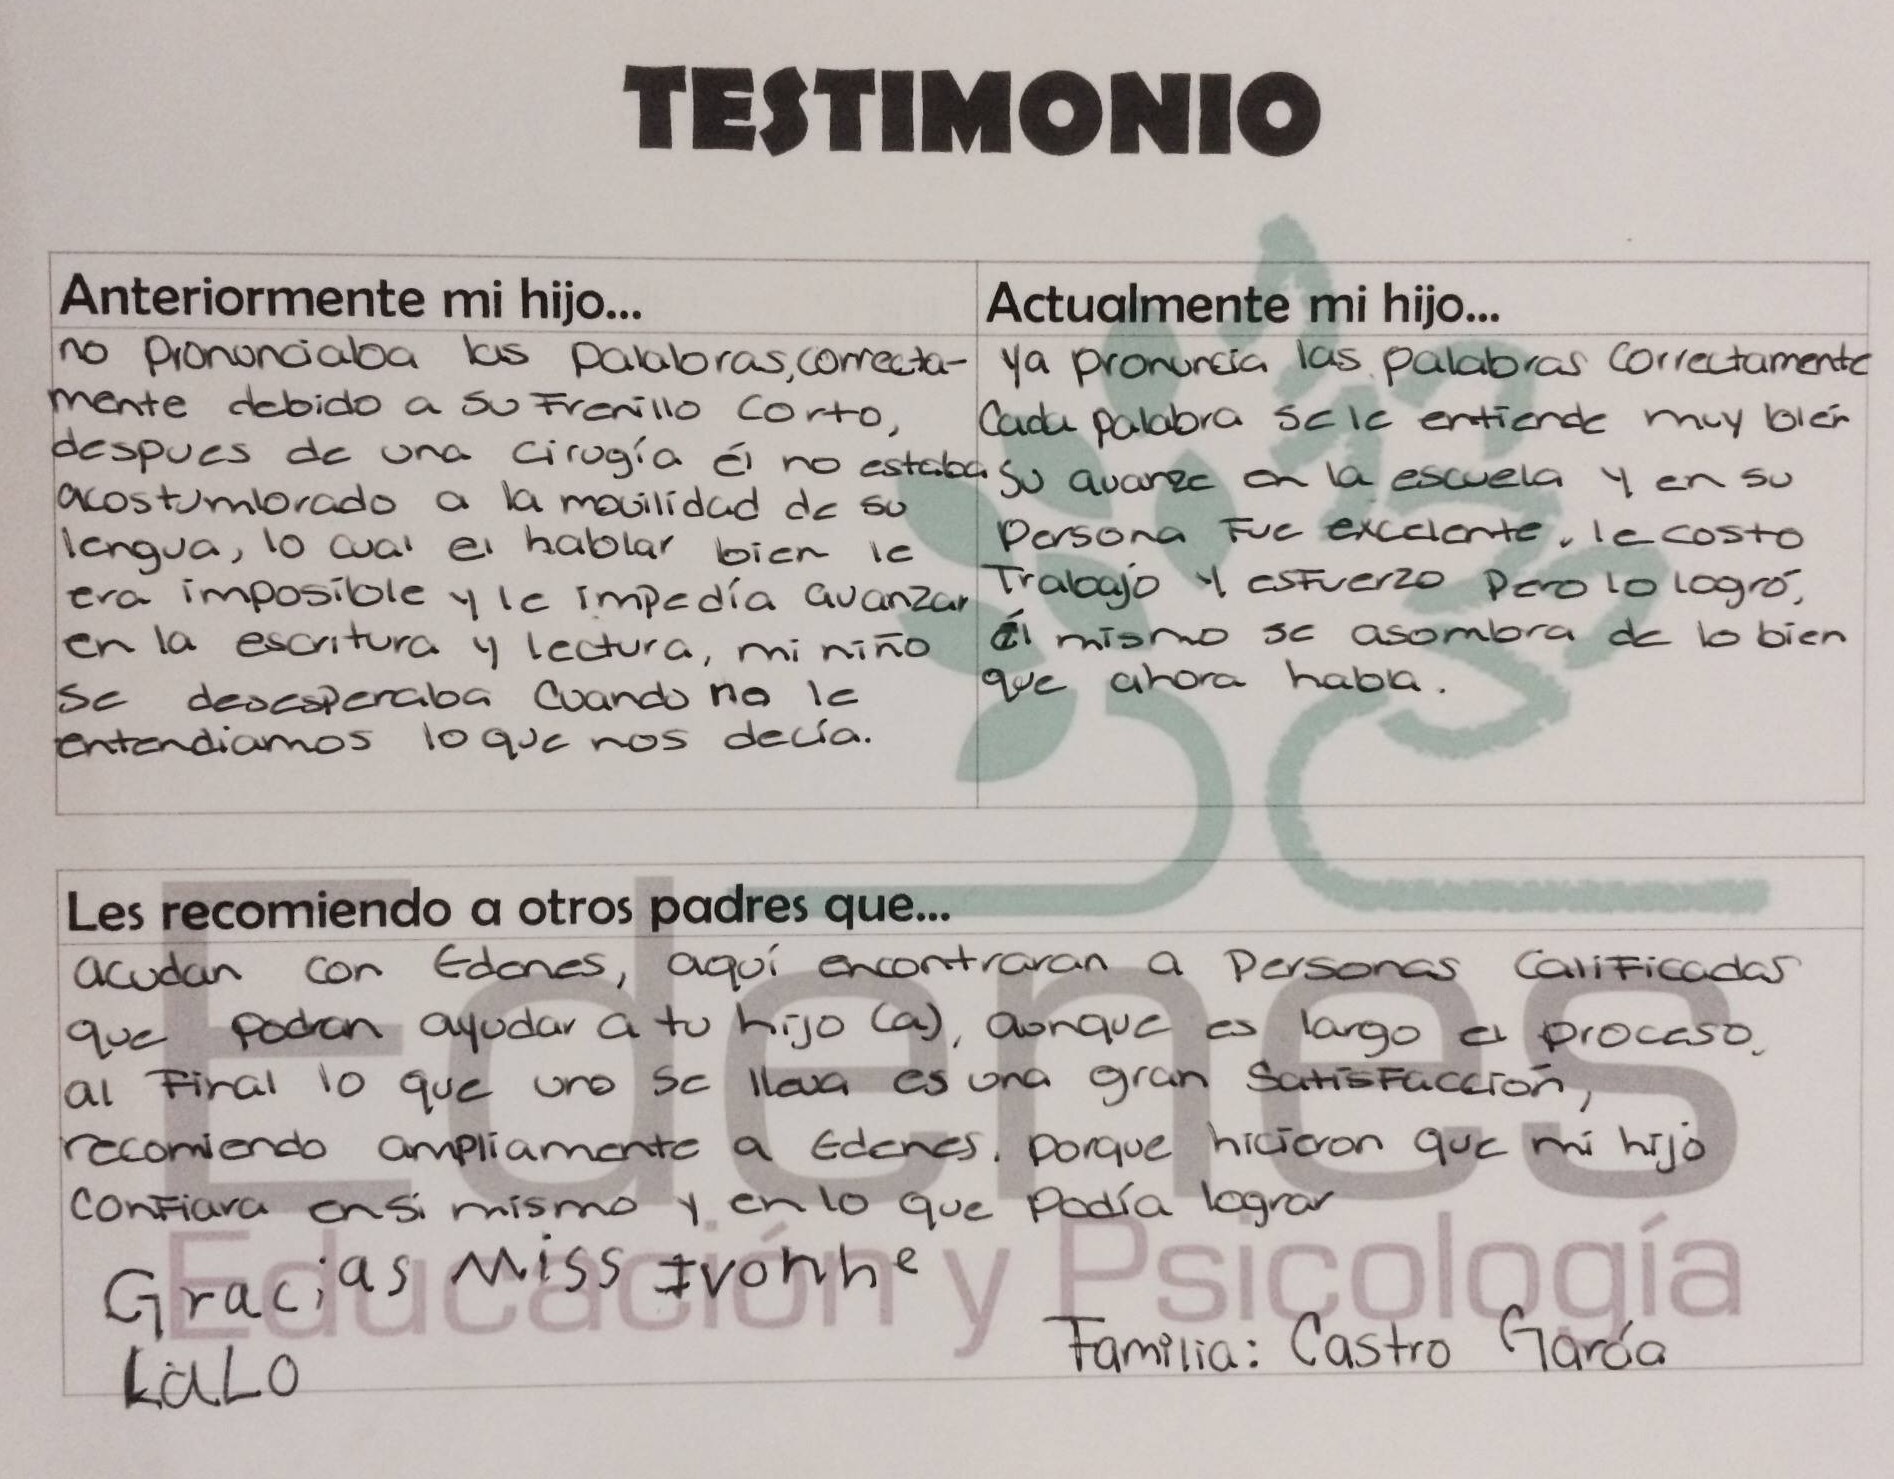 TESTIMONIO
Anteriormente mi hijo...
no pronunciaba las palabras, correcta-
mente debido a su frenillo corto,
despues de una cirugía él no estaba
acostumbrado a la movilidad de su
lengua, lo cual el hablar bien le
era imposible y le impedía avanzar
en la escritura y lectura, mi niño
se desesperaba cuando no le
entendiamos lo que nos decía.
Actualmente mi hijo...
ya pronuncia las palabras correctamente
Cada palabra se le entiende muy bién
su avanze en la escuela y en su
persona fue excelente, le costo
Trabajo y esfuerzo pero lo logró,
Él mismo se asombra de lo bien
que ahora habla.
Les recomiendo a otros padres que...
acudan con Edenes, aquí encontraran a personas calificadas
que podran ayudar a tu hijo (a), aunque es largo el proceso,
al final lo que uno se lleva es una gran satisfacción,
recomiendo ampliamente a Edenes. porque hicieron que mi hijo
confiara en si mismo y en lo que podía lograr
Gracias Miss Ivonne
LaLo
Familia: Castro García
Edenes
Educación y Psicología